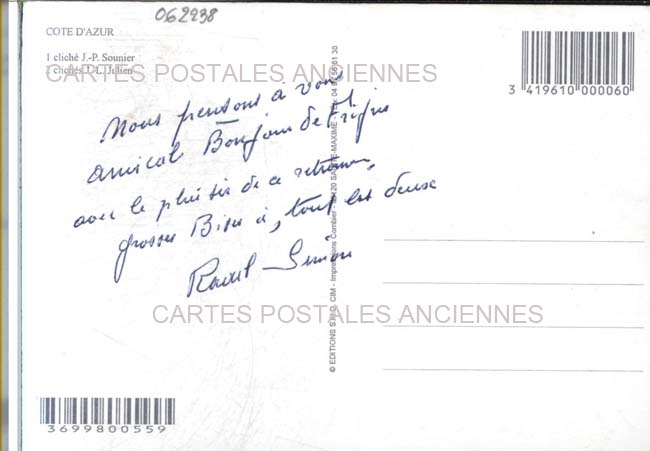 062238
COTE D'AZUR
1 cliché J.-P. Sounier
2 clichés J.-L. Julien
CARTES POSTALES ANCIENNES
3 419610 000060
Nous pensons à vous
amical Bonjour de Fréjus
avec le plaisir de ce retrouver,
grosses Bises à, tout les deux
Raoul Simon
© EDITIONS S.M.D. CIM - Impressions Combier - 83120 SAINTE-MAXIME
CARTES POSTALES ANCIENNES
3699800559